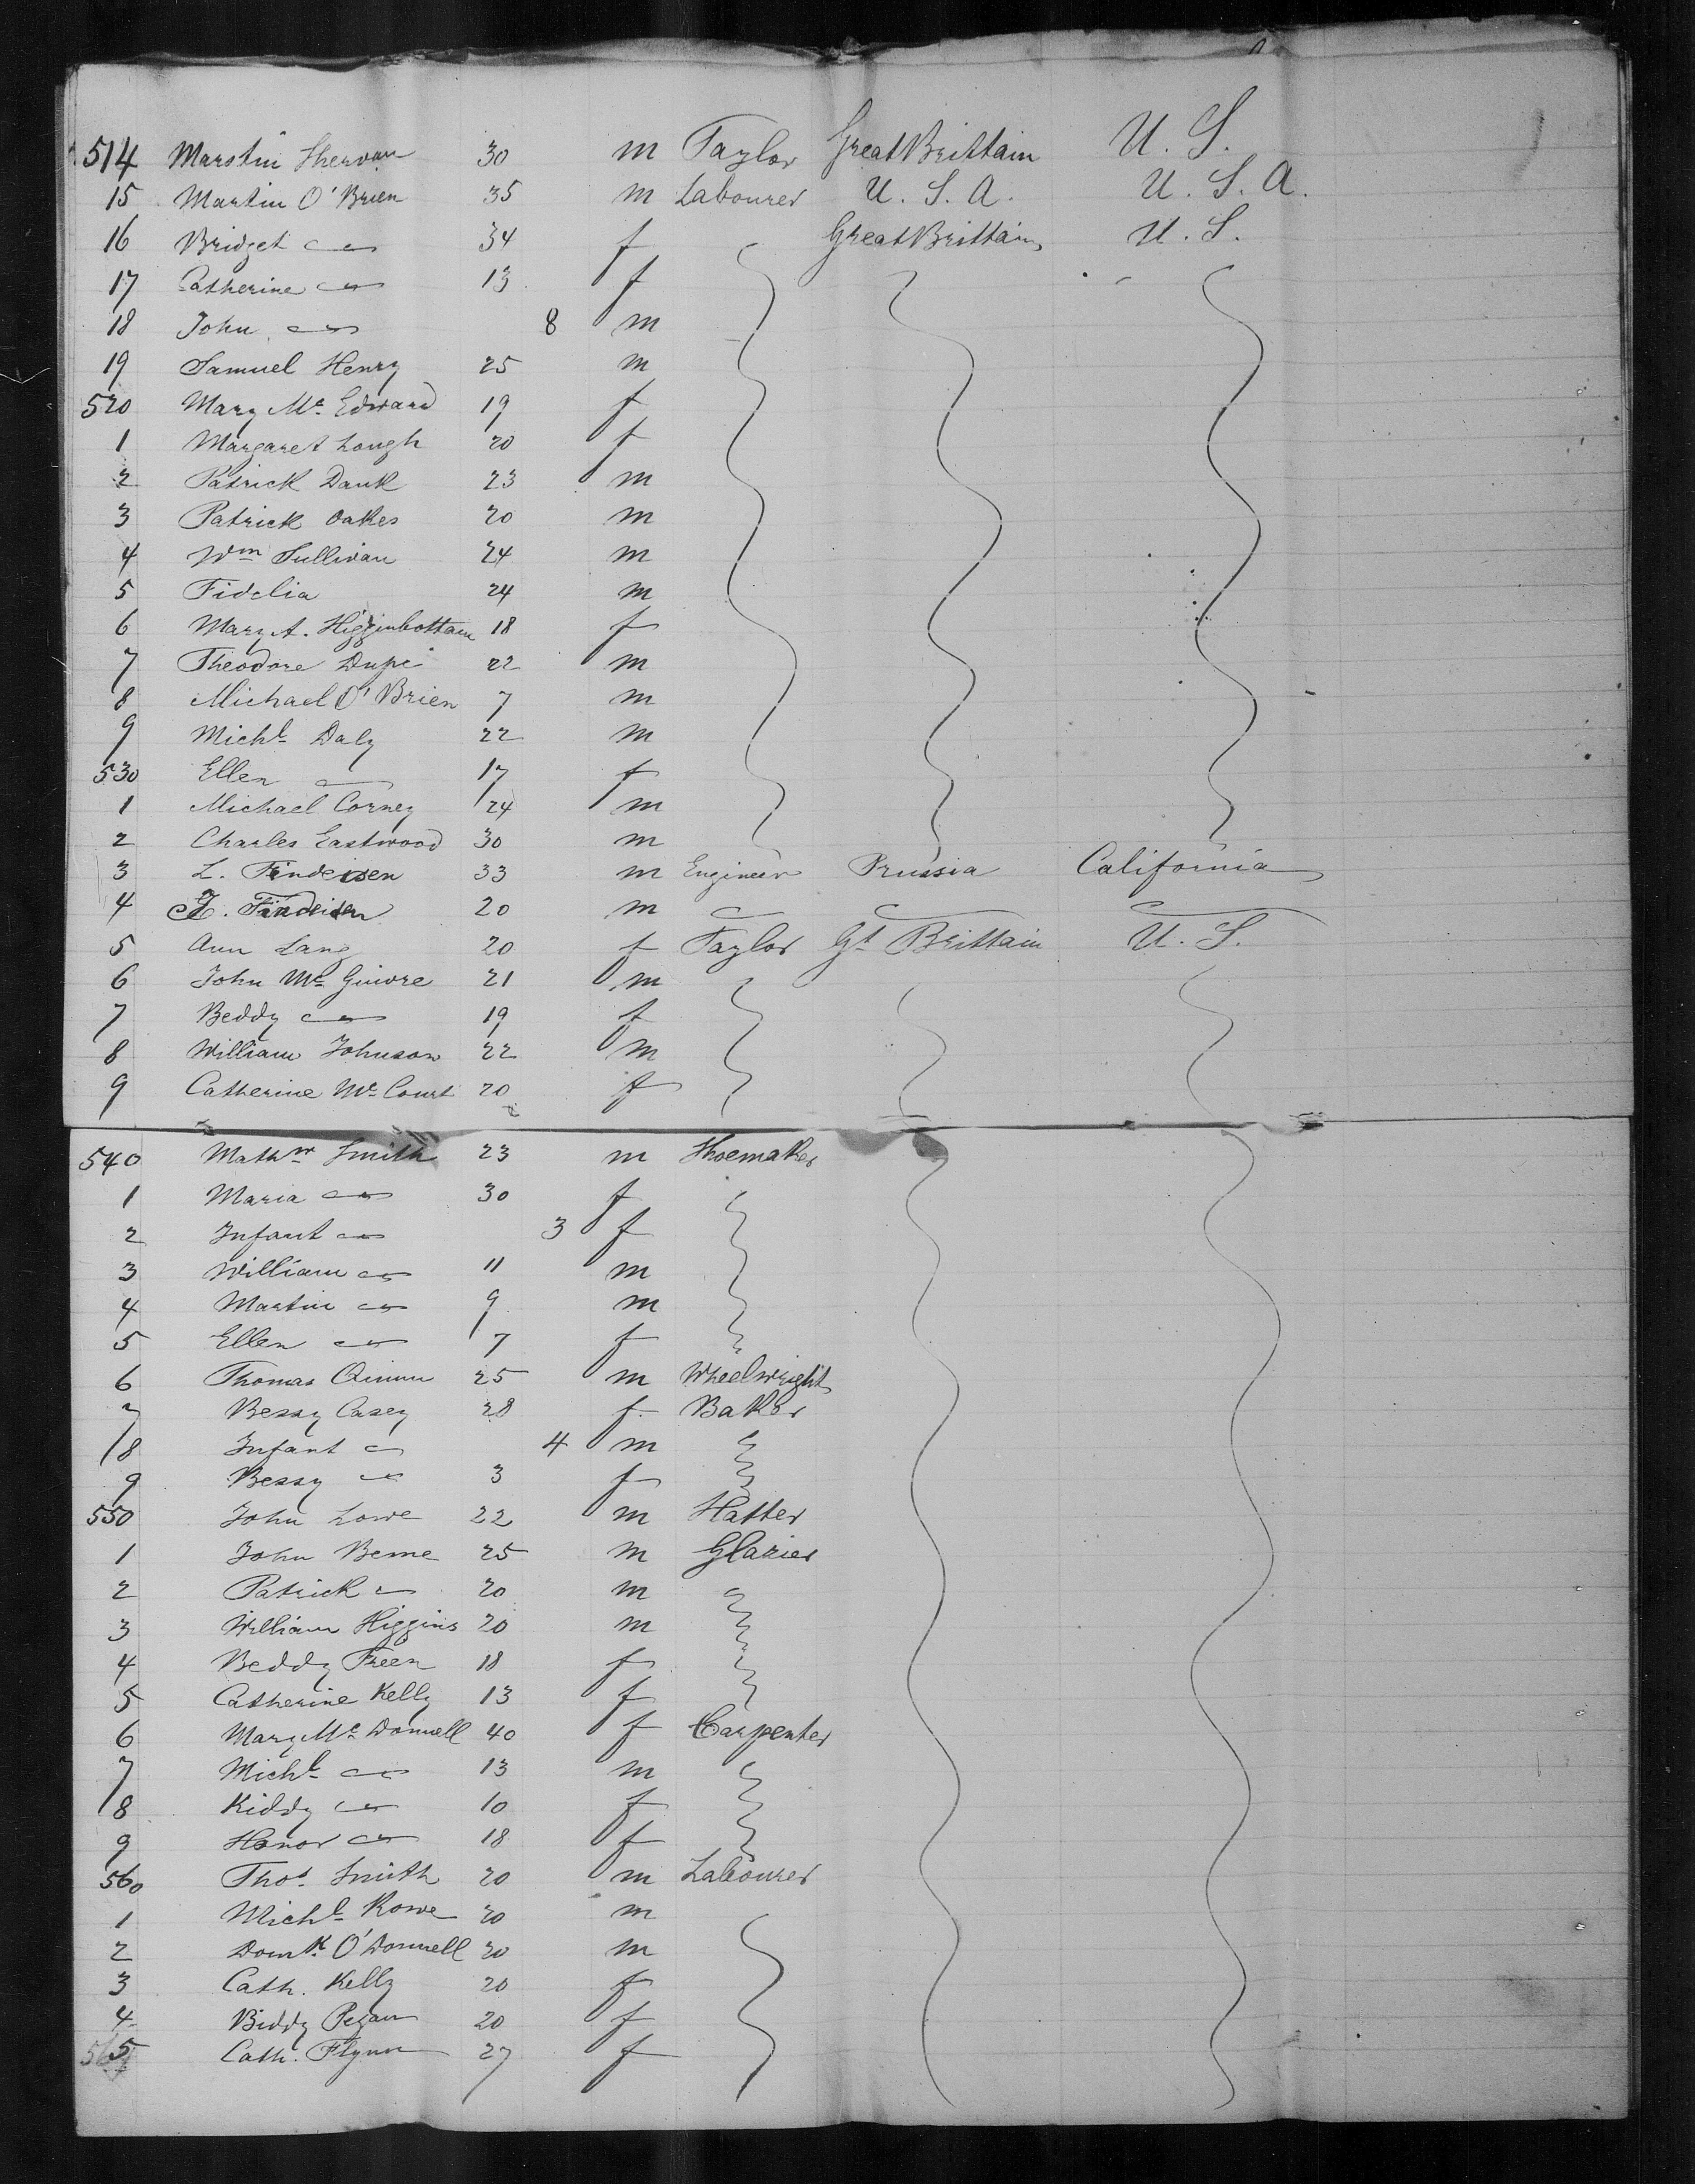 514 Marstin Shervan 30 m Taylor Great Brittain U. S.
15 Martin O'Brien 35 m Labourer U. S. A. U. S. A.
16 Bridget 34 f Great Brittain U. S.
17 Catherine 13 f
18 John 8 m
19 Samuel Henry 25 m
520 Mary Mc Edward 19 f
1 Margaret Lough 20 f
2 Patrick Dauk 23 m
3 Patrick Oakes 20 m
4 Wm Sullivan 24 m
5 Fidelia 24 m
6 Mary A. Higginbottam 18 f
7 Theodore Dupe 22 m
8 Michael O'Brien 7 m
9 Michl Daly 22 m
530 Ellen 17 f
1 Michael Corney 24 m
2 Charles Eastwood 30 m
3 L. Findeisen 33 m Engineer Prussia California
4 Findeisen 20 m
5 Ann Lang 20 f Taylor Gt Brittain U. S.
6 John Mc Guivre 21 m
7 Beddy 19 f
8 William Johnson 22 m
9 Catherine Mc Court 20 f
540 Mathw Smith 23 m Shoemaker
1 Maria 30 f
2 Infant 3 f
3 William 11 m
4 Martin 9 m
5 Ellen 7 f
6 Thomas Quinn 25 m Wheelwright
7 Bessy Casey 28 f. Baker
8 Infant 4 m
9 Bessy 3 f
550 John Lowe 22 m Hatter
1 John Beme 25 m Glazier
2 Patrick 20 m
3 William Higgins 20 m
4 Beddy Freen 18 f
5 Catherine Kelly 13 f
6 Mary Mc Donnell 40 f Carpenter
7 Michl 13 m
8 Kiddy 10 f
9 Honor 18 f
560 Thos Smith 20 m Labourer
1 Michl Rowe 20 m
2 Domk O'Donnell 20 m
3 Cath. Kelly 20 f
4 Biddy Regan 20 f
5 Cath. Flynn 27 f